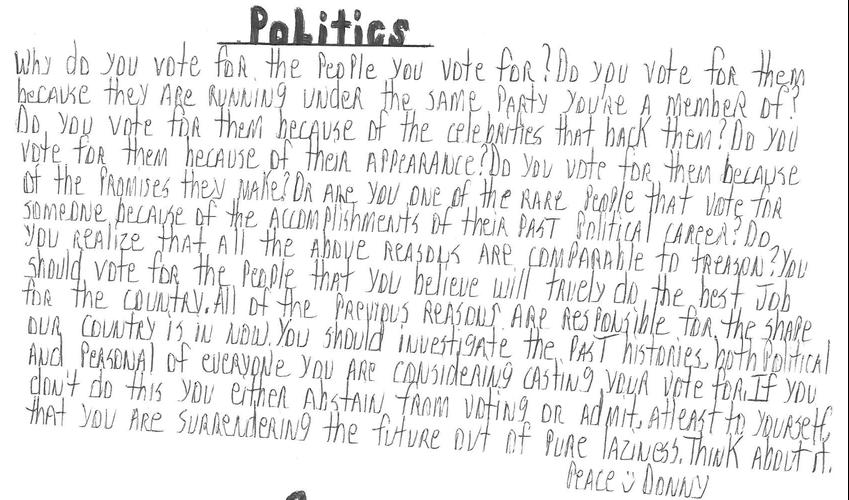 Politics
Why do you vote for the people you vote for? Do you vote for them
because they are running under the same party you're a member of?
Do you vote for them because of the celebrities that back them? Do you
vote for them because of their appearance? Do you vote for them because
of the promises they make? Or are you one of the rare people that vote for
someone because of the accomplishments of their past political career? Do
you realize that all the above reasons are comparable to treason? You
should vote for the people that you believe will truely do the best job
for the country. All of the previous reasons are responsible for the shape
our country is in now. You should investigate the past histories, both political
and personal of everyone you are considering casting your vote for. If you
don't do this you either abstain from voting or admit, atleast to yourself,
that you are surrendering the future out of pure laziness. Think about it.
Peace :) Donny